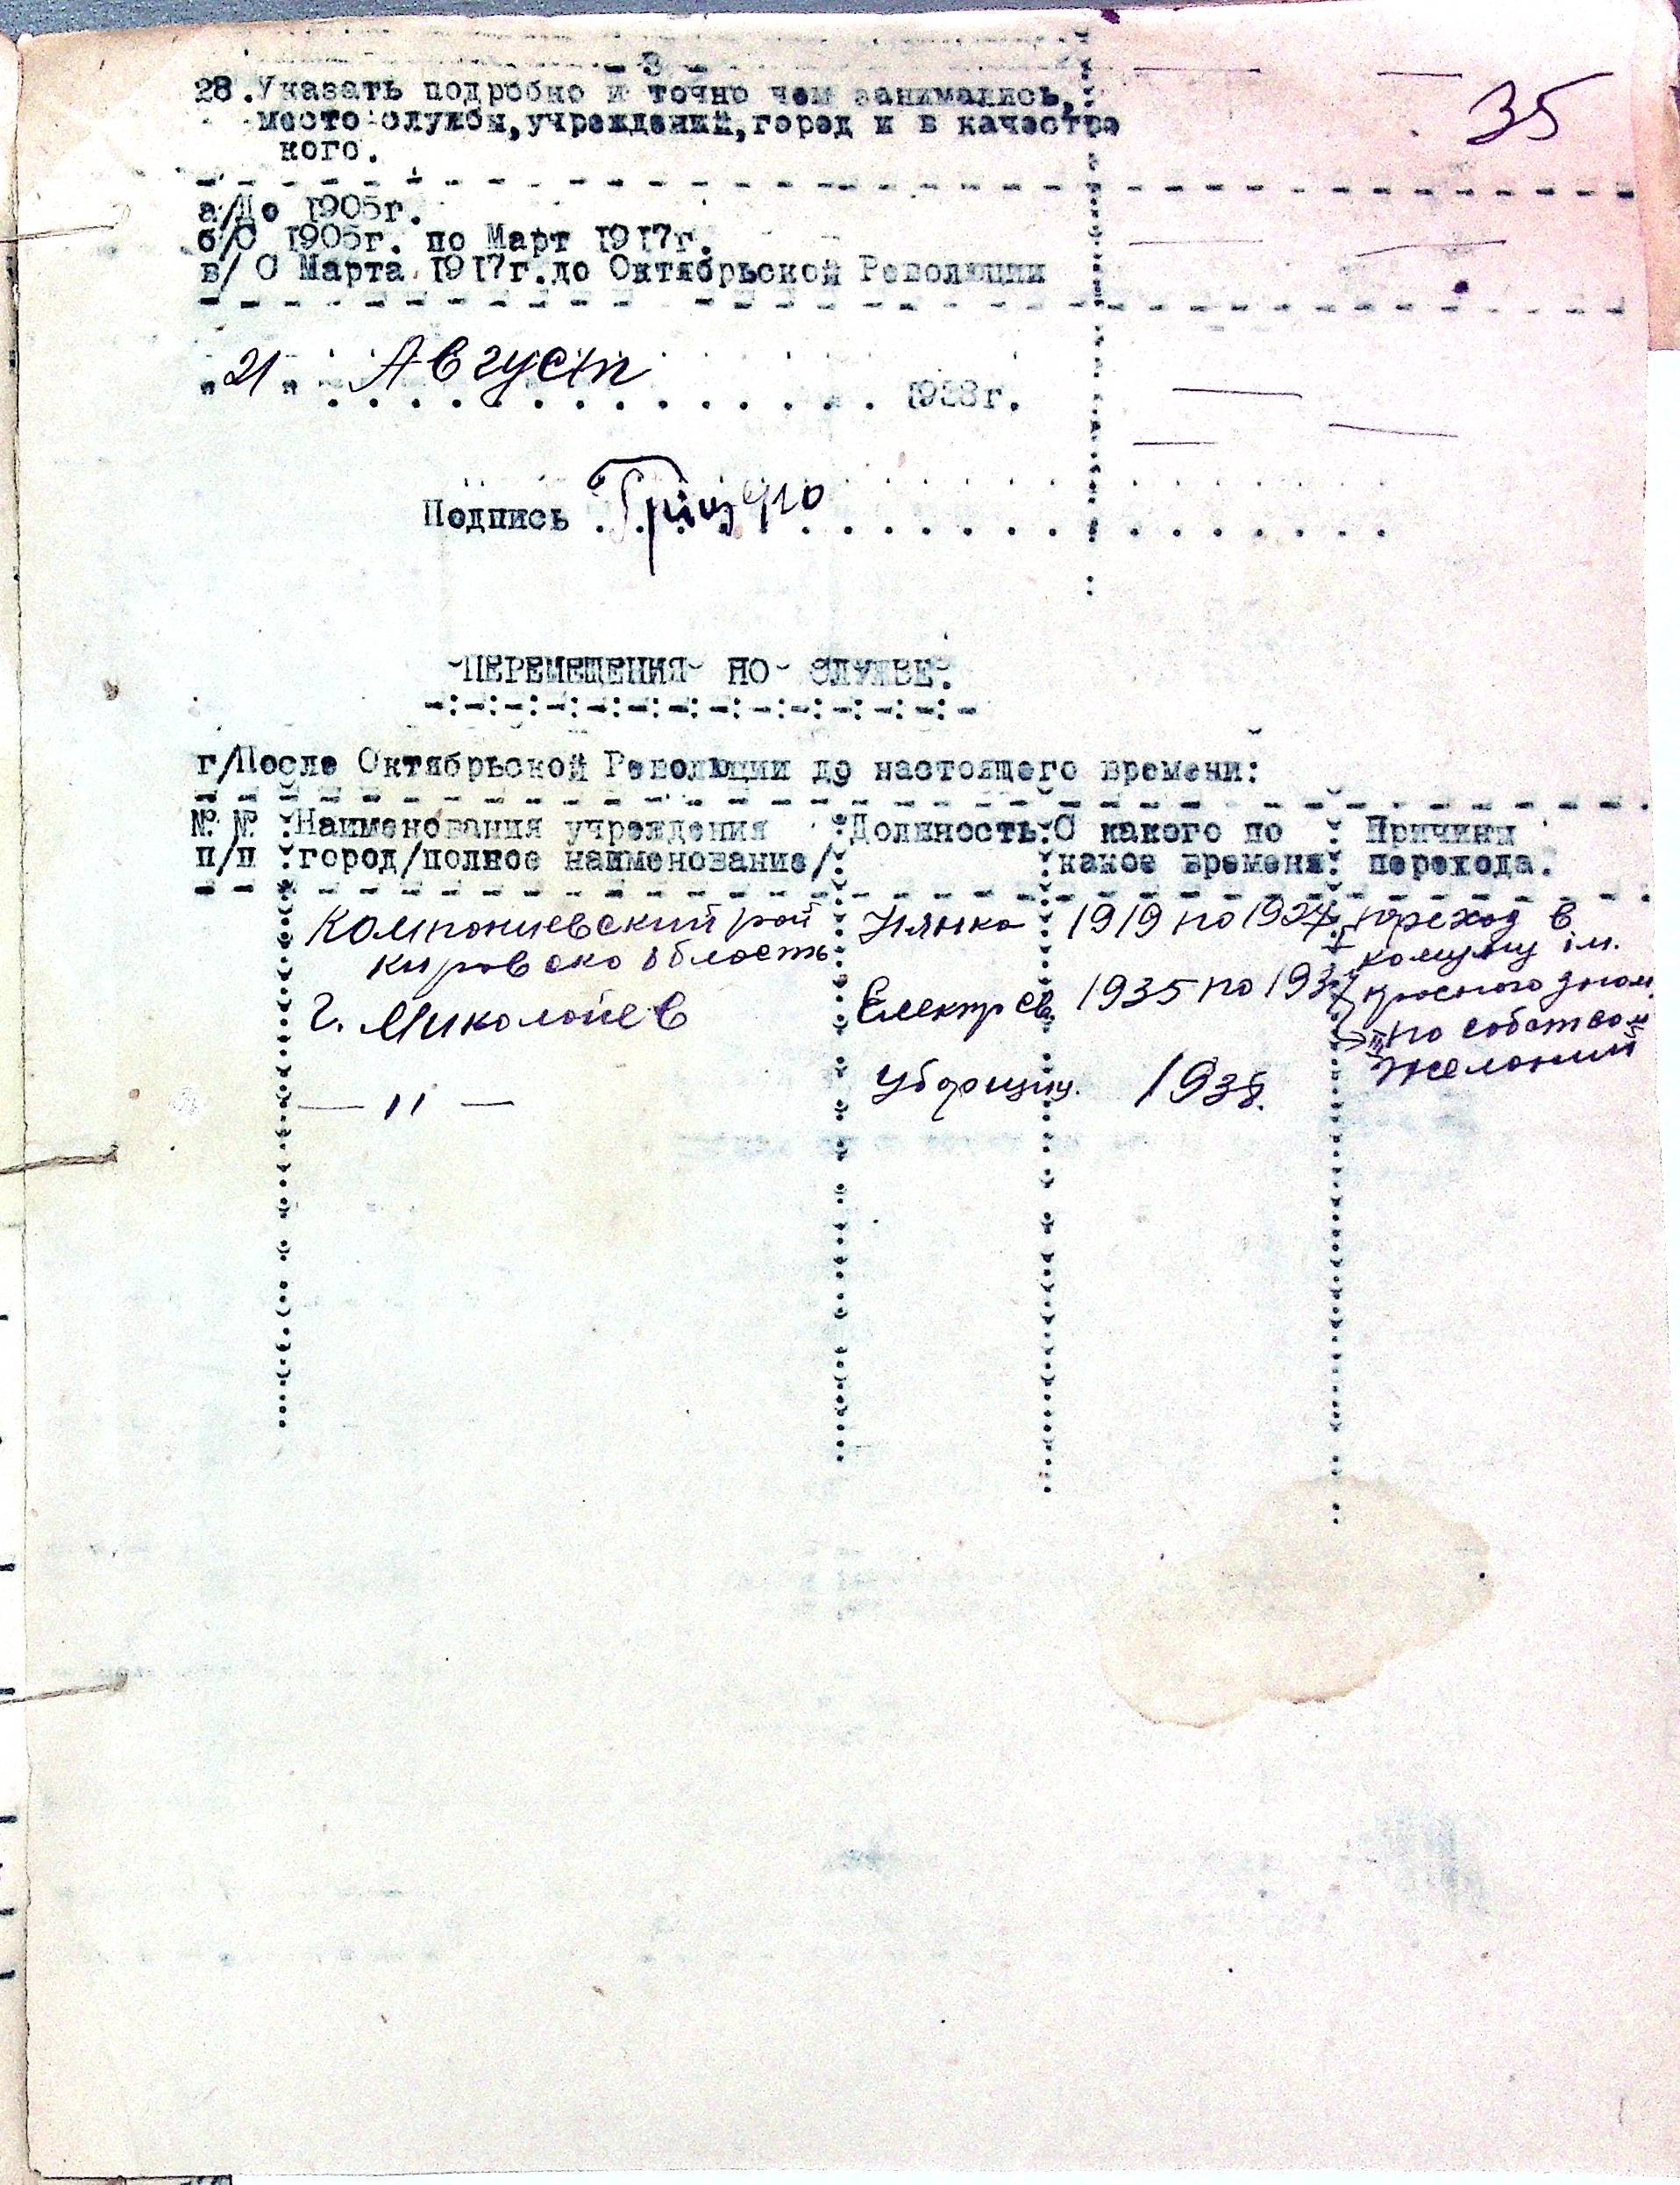 - 3 -
35
28.Указать подробно и точно чем занимались,
место службы,учреждений,город и в качестве
кого.
а/До 1905г.
б/С 1905г. по Март 1917г.
в/ С Марта 1917г.до Октябрьской Революции
"21" Август 1938г.
Подпись
ПЕРЕМЕЩЕНИЯ ПО СЛУЖБЕ.
г/После Октябрьской Революции до настоящего времени:
№ № Наименования учреждения Должность С какого по Причины
п/п город/полное наименование/ какое времени перехода.
Компониевский рай Нянка 1919 по 1924 переход в
кировско область комуну ім.
г. Миколаїев Електр св. 1935 по 1937 красного
по собствон
— " — Уборщиц. 1938. желании